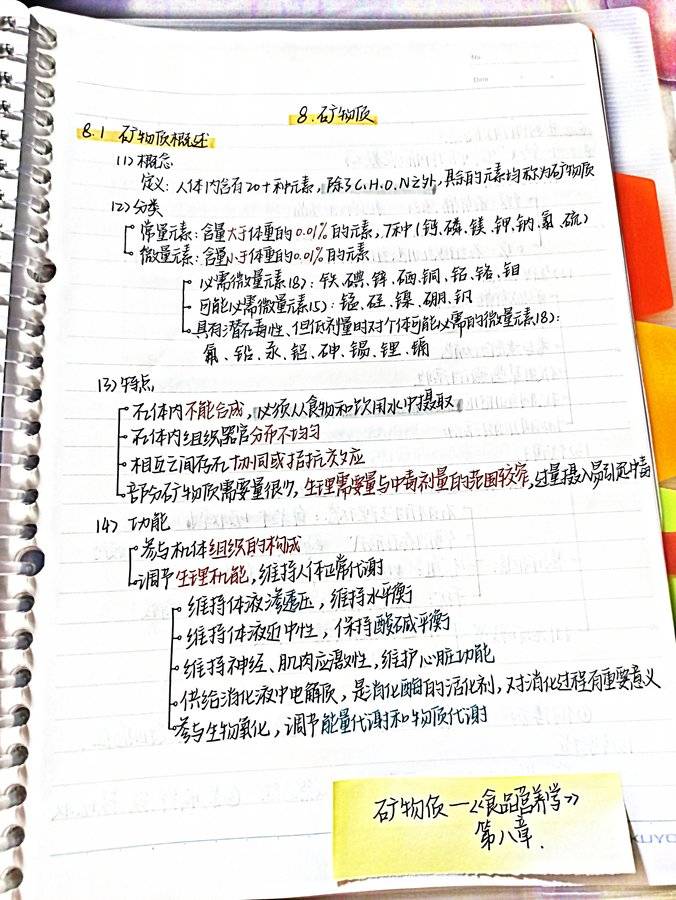 No
Date
8.矿物质
8.1 矿物质概述
(1)概念
定义:人体内含有20十种元素,除了C.H.O.N之外,其余的元素均称为矿物质
(2)分类
常量元素:含量大于体重的0.01%的元素,7种(钙、磷、镁、钾、钠、氯、硫)
微量元素:含量小于体重的0.01%的元素
必需微量元素(8):铁、碘、锌、硒、铜、钴、铬、钼
可能必需微量元素(5):锰、硅、镍、硼、钒
具有潜在毒性,但低剂量时对个体可能必需的微量元素(8):
氟、铅、汞、铝、砷、锡、锂、镉
(3)特点
在体内不能合成,必须从食物和饮用水中摄取
在体内组织器官分布不均匀
相互之间存在协同或拮抗效应
部分矿物质需要量很少,生理需要量与中毒剂量的范围较窄,过量摄入易引起中毒
(4)功能
参与机体组织的构成
调节生理机能,维持人体正常代谢
维持体液渗透压,维持水平衡
维持体液近中性,保持酸碱平衡
维持神经、肌肉应激性,维护心脏功能
供给消化液中电解质,是消化酶的活化剂,对消化过程有重要意义
参与生物氧化,调节能量代谢和物质代谢
矿物质—《食品营养学》
第八章.